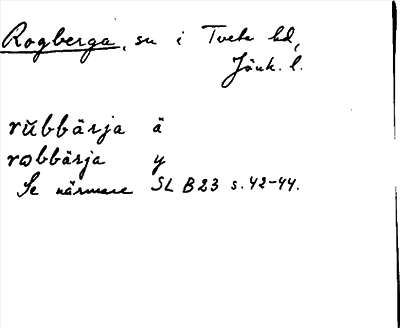 Rogberga, sn i Tveta hd,
Jönk. l.
rŭbbärja ä
røbbärja y
Se närmare SL B23 s. 42-44.